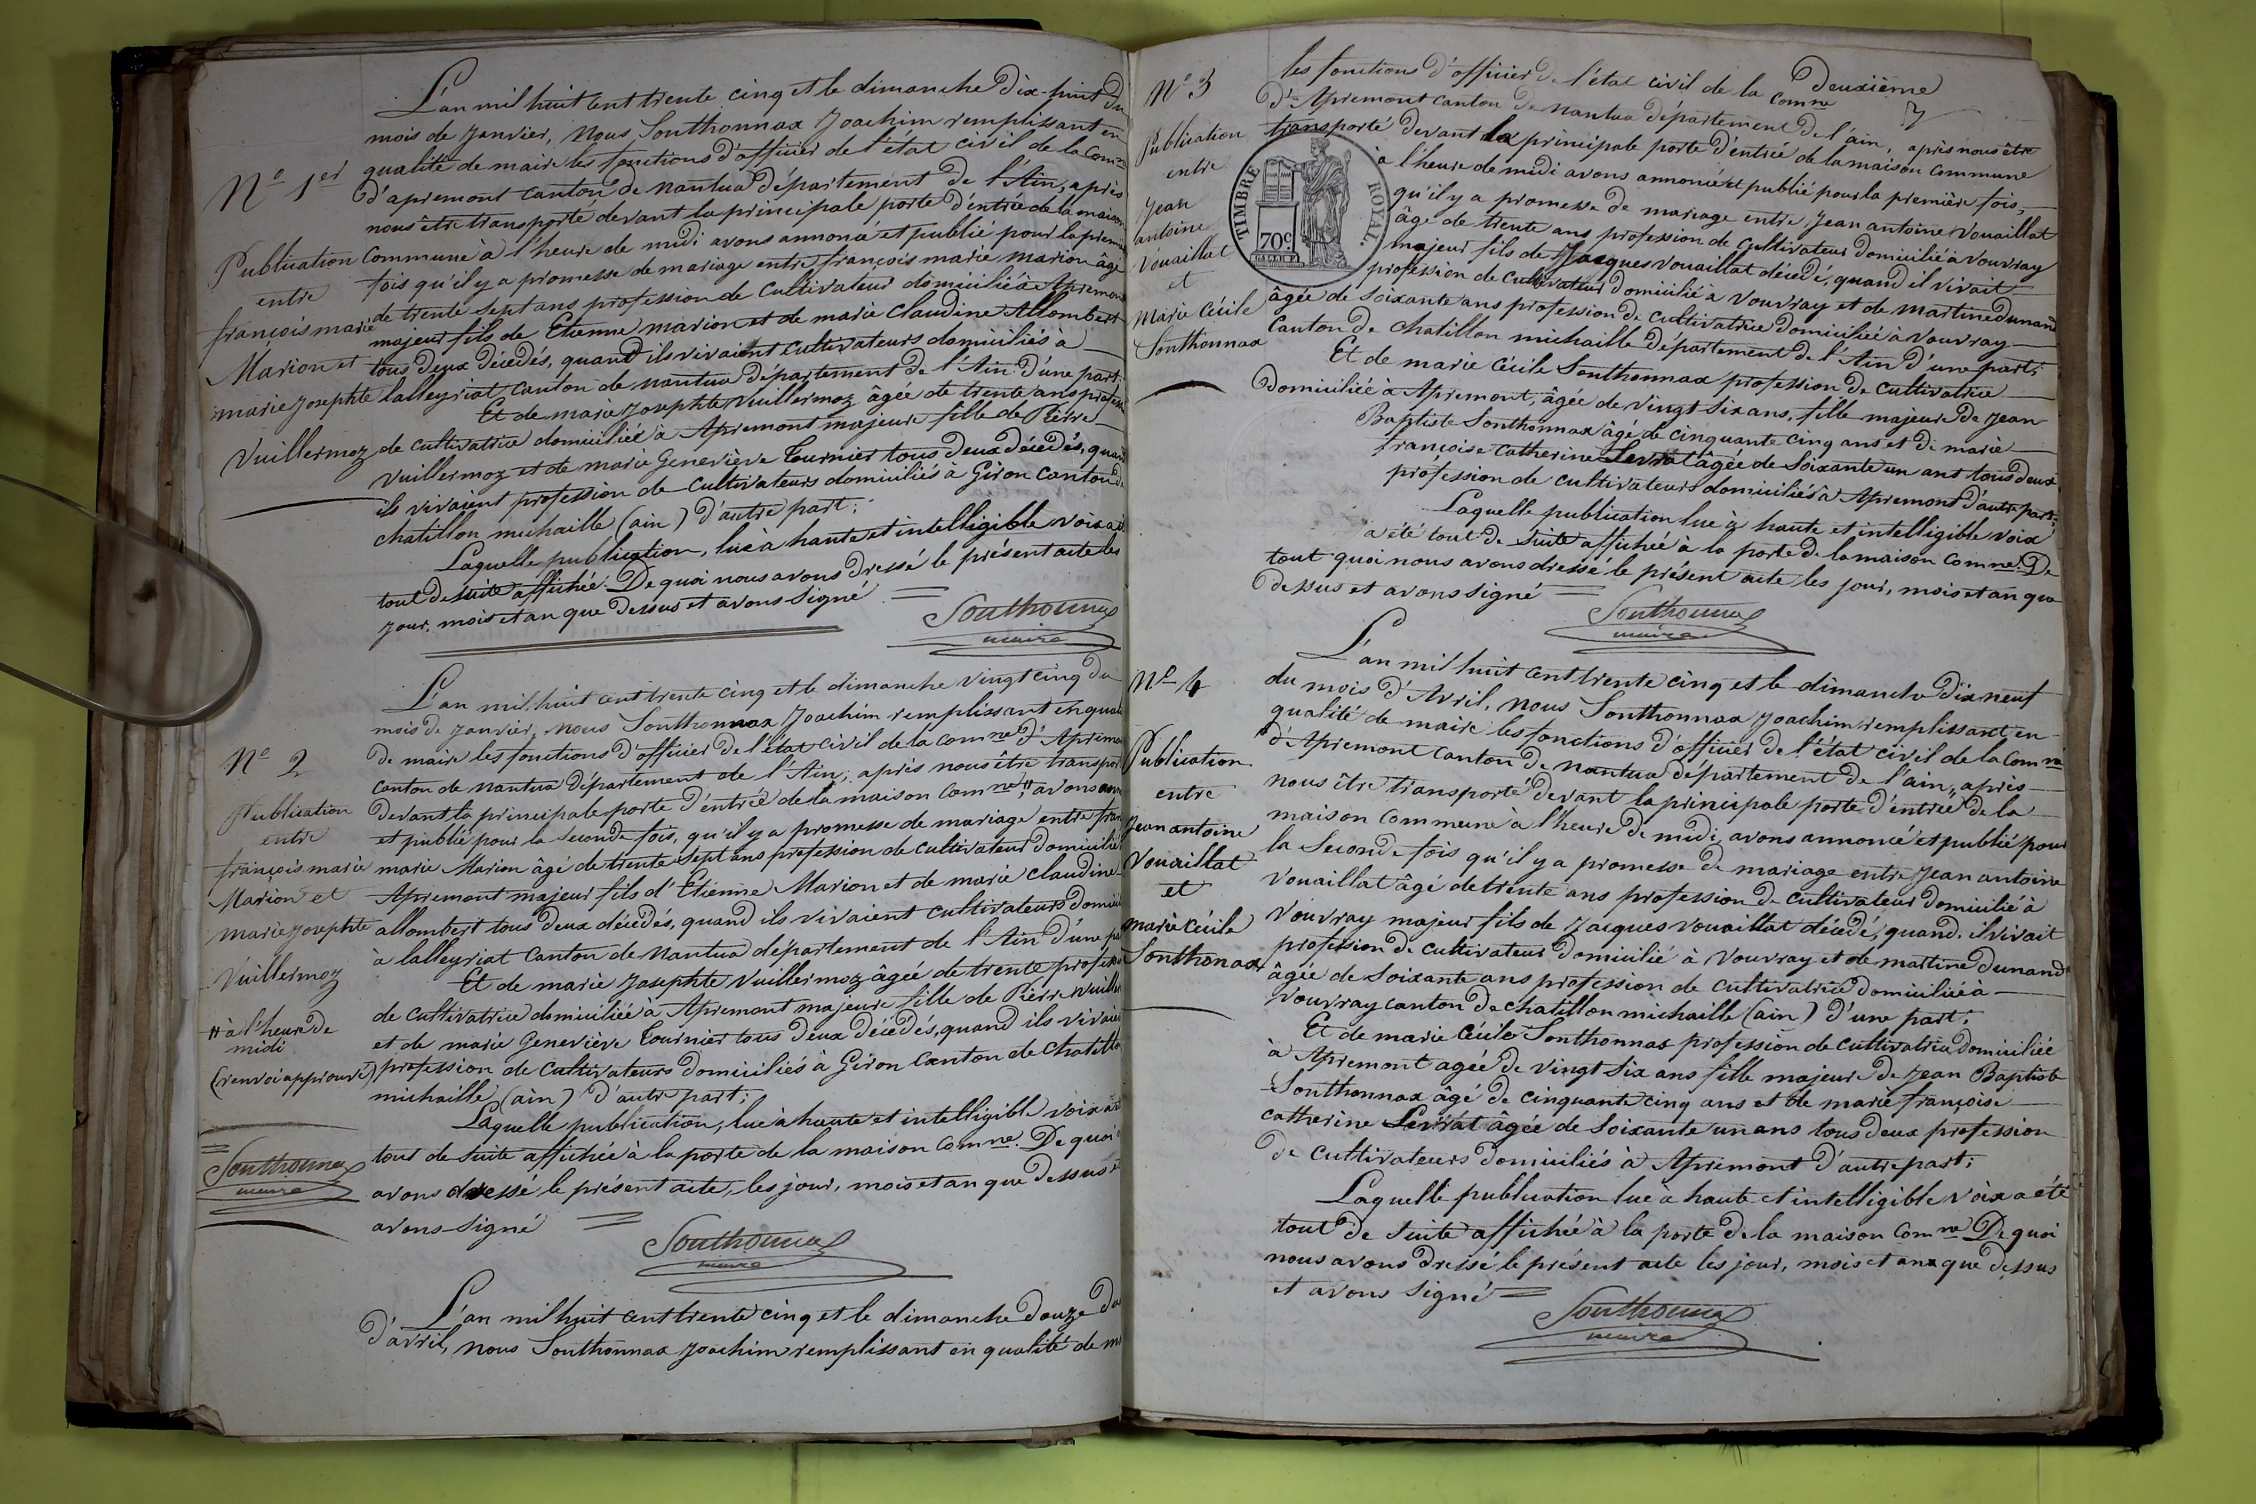 N° 1er
Publication
entre
françois marie
Marion et
marie josephte
Vuillermoz
L'an mil huit cent trente cinq et le dimanche dix-huit du
mois de janvier, nous Sonthonnax Joachim remplissant en
qualité de maire les fonctions d'officier de l'état civil de la Comne
d'apremont canton de nantua département de l'Ain, après
nous être transporté devant la principale porte d'entrée de la maison
Commune à l'heure de midi avons annoncé et publié pour la premiè
fois qu'il y a promesse de mariage entre françois marie Marion âgé
de trente sept ans profession de Cultivateur domicilié à Apremont
majeur fils de Etienne marion et de marie Claudine Allombert
tous deux décédés, quand ils vivaient cultivateurs domiciliés à
lalleyriat canton de nantua département de l'Ain d'une part;
Et de marie josephte Vuillermoz âgée de trente ans profess
de cultivatrice domiciliée à Apremont majeure fille de Pierre
Vuillermoz et de marie Geneviève Tournier tous deux décédés, quand
ils vivaient profession de Cultivateurs domiciliés à Giron canton de
chatillon michaille (ain) d'autre part;
Laquelle publication, lue à haute et intelligible voix a été
tout de suite affichée. De quoi nous avons dressé le présent acte les
jour, mois et an que dessus et avons signé
Sonthonnax
maire
N° 2
Publication
entre
françois marie
Marion et
Marie josephte
Vuillermoz
# à l'heure de
midi
(renvoi approuvé)
Sonthonnax
maire
L'an mil huit cent trente cinq et le dimanche vingt cinq du
mois de janvier, nous Sonthonnax Joachim remplissant en quali
de maire les fonctions d'officier de l'état civil de la comne d'Apremo
canton de nantua département de l'Ain, après nous être transpor
devant la principale porte d'entrée de la maison comne, # avons ann
et publié pour la seconde fois, qu'il y a promesse de mariage entre fran
marie Marion âgé de trente sept ans profession de cultivateur domicilié
Apremont majeur fils d'Etienne Marion et de marie claudine
allombert tous deux décédés, quand ils vivaient cultivateurs domici
à lalleyriat canton de nantua département de l'Ain d'une pa
Et de marie Josephte Vuillermoz âgée de trente profess
de cultivatrice domiciliée à Apremont majeure fille de Pierre Vuille
et de marie Geneviève Tournier tous deux décédés, quand ils vivaie
profession de Cultivateurs domiciliés à Giron Canton de Chatillo
michaille (ain) d'autre part;
Laquelle publication, lue à haute et intelligible voix a été
tout de suite affichée à la porte de la maison comne. De quoi
avons dressé le présent acte, les jour, mois et an que dessus et
avons signé
Sonthonnax
maire
L'an mil huit cent trente cinq et le dimanche douze du
d'avril, nous Sonthonnax Joachim remplissant en qualité de m
deuxième
N° 3
Publication
entre
Jean
antoine
Vouaillat
et
Marie Cécile
Sonthonnax
TIMBRE ROYAL.
70c.
les fonctions d'officier de l'état civil de la comne
d'Apremont canton de nantua département de l'ain, après nous être
transporté devant la principale porte d'entrée de la maison commune
à l'heure de midi avons annoncé et publié pour la première fois,
qu'il y a promesse de mariage entre Jean antoine Vouaillat
âgé de trente ans profession de cultivateur domicilié à Vouvray
majeur fils de Jacques Vouaillat décédé, quand il vivait
profession de cultivateur domicilié à Vouvray et de martine Dunand
âgée de soixante ans profession de cultivatrice domiciliée à Vouvray
Canton de chatillon michaille département de l'Ain d'une part;
Et de marie Cécile Sonthonnax profession de cultivatrice
domiciliée à Apremont, âgée de vingt six ans, fille majeure de Jean
Baptiste Sonthonnax âgé de cinquante cinq ans et de marie
françoise catherine Levrat âgée de soixante un ans tous deux
profession de cultivateurs domiciliés à Apremont d'autre part;
Laquelle publication lue à haute et intelligible voix
a été tout de suite affichée à la porte de la maison comne. De
tout quoi nous avons dressé le présent acte les jour, mois et an que
dessus et avons signé
Sonthonnax
maire
N° 4
Publication
entre
Jean antoine
Vouaillat
et
marie Cécile
Sonthonax
L'an mil huit cent trente cinq et le dimanche dix neuf
du mois d'Avril, nous Sonthonnax Joachim remplissant en
qualité de maire les fonctions d'officier de l'état civil de la comne
d'Apremont canton de nantua département de l'ain, après
nous être transporté devant la principale porte d'entrée de la
maison commune à l'heure de midi avons annoncé et publié pour
la seconde fois qu'il y a promesse de mariage entre Jean antoine
Vouaillat âgé de trente ans profession de cultivateur domicilié à
Vouvray majeur fils de Jacques Vouaillat décédé, quand il vivait
profession de cultivateur domicilié à Vouvray et de martine Dunand
âgée de soixante ans profession de cultivatrice domiciliée à
Vouvray canton de chatillon michaille (ain) d'une part;
Et de marie Cécile Sonthonnax profession de cultivatrice domiciliée
à Apremont agée de vingt six ans fille majeure de Jean Baptiste
Sonthonnax âgé de cinquante cinq ans et de marie françoise
catherine Levrat âgée de soixante un ans tous deux profession
de cultivateurs domiciliés à Apremont d'autre part;
Laquelle publication lue à haute et intelligible voix a été
tout de suite affichée à la porte de la maison comne De quoi
nous avons dressé le présent acte les jour, mois et an que dessus
et avons signé
Sonthonnax
maire